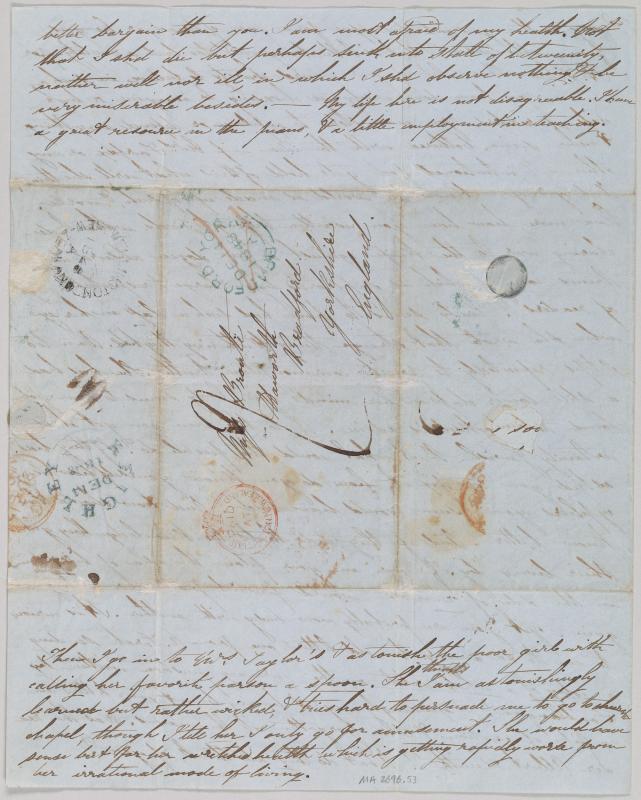 better bargain than you. I am most afraid of my health. Not
that I shd die but perhaps sink into a state of betweenity
neither well nor ill, in which I shd observe nothing & be
very miserable besides. — My life here is not disagreeable. I have
a great resource in the piano, & a little employment in teaching.
Miss Brontë
Haworth
Bradford
Yorkshire
England.
KEIGHLEY
PAID
Then I go in to Mrs Taylor's & astonish the poor girl with
calling her favorite parson a spoon. She thinks I am astonishingly
learned but rather wicked & tries hard to persuade me to go to church
chapel, though I tell her I only go for amusement. She would have
sense but for her wretched health which is getting rapidly worse from
her irrational mode of living.
MA 2696.53